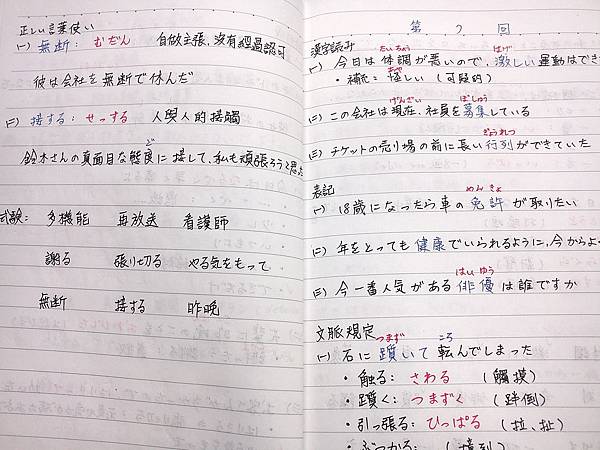 正しい言葉使い
(一) 無断: むだん 自做主張、沒有經過認可
彼は会社を無断で休んだ
(二) 接する: せっする 人與人的接觸
ど
鈴木さんの真面目な態度に接して、私も頑張ろうと思
試験: 多機能 再放送 看護師
謝る 張り切る やる気をもって
無断 接する 昨晩
第 7 回
漢字読み
たいちょう はげ
(一) 今日は体調が悪いので、激しい運動はでき
・補充: 怪しい (可疑的)
げんざい ぼしゅう
(二) この会社は現在、社員を募集している
ぎょうれつ
(三) チケットの売り場の前に長い行列ができていた
表記
めんきょ
(一) 18歳になったら車の免許が取りたい
(二) 年をとっても健康でいられるように、今から
はいゆう
(三) 今一番人気がある俳優は誰ですか
文脈規定
つまず ころ
(一) 石に躓いて転んでしまった
・触る: さわる (觸摸)
・躓く: つまずく (絆倒)
・引っ張る: ひっぱる (拉、扯)
・ぶつかる: